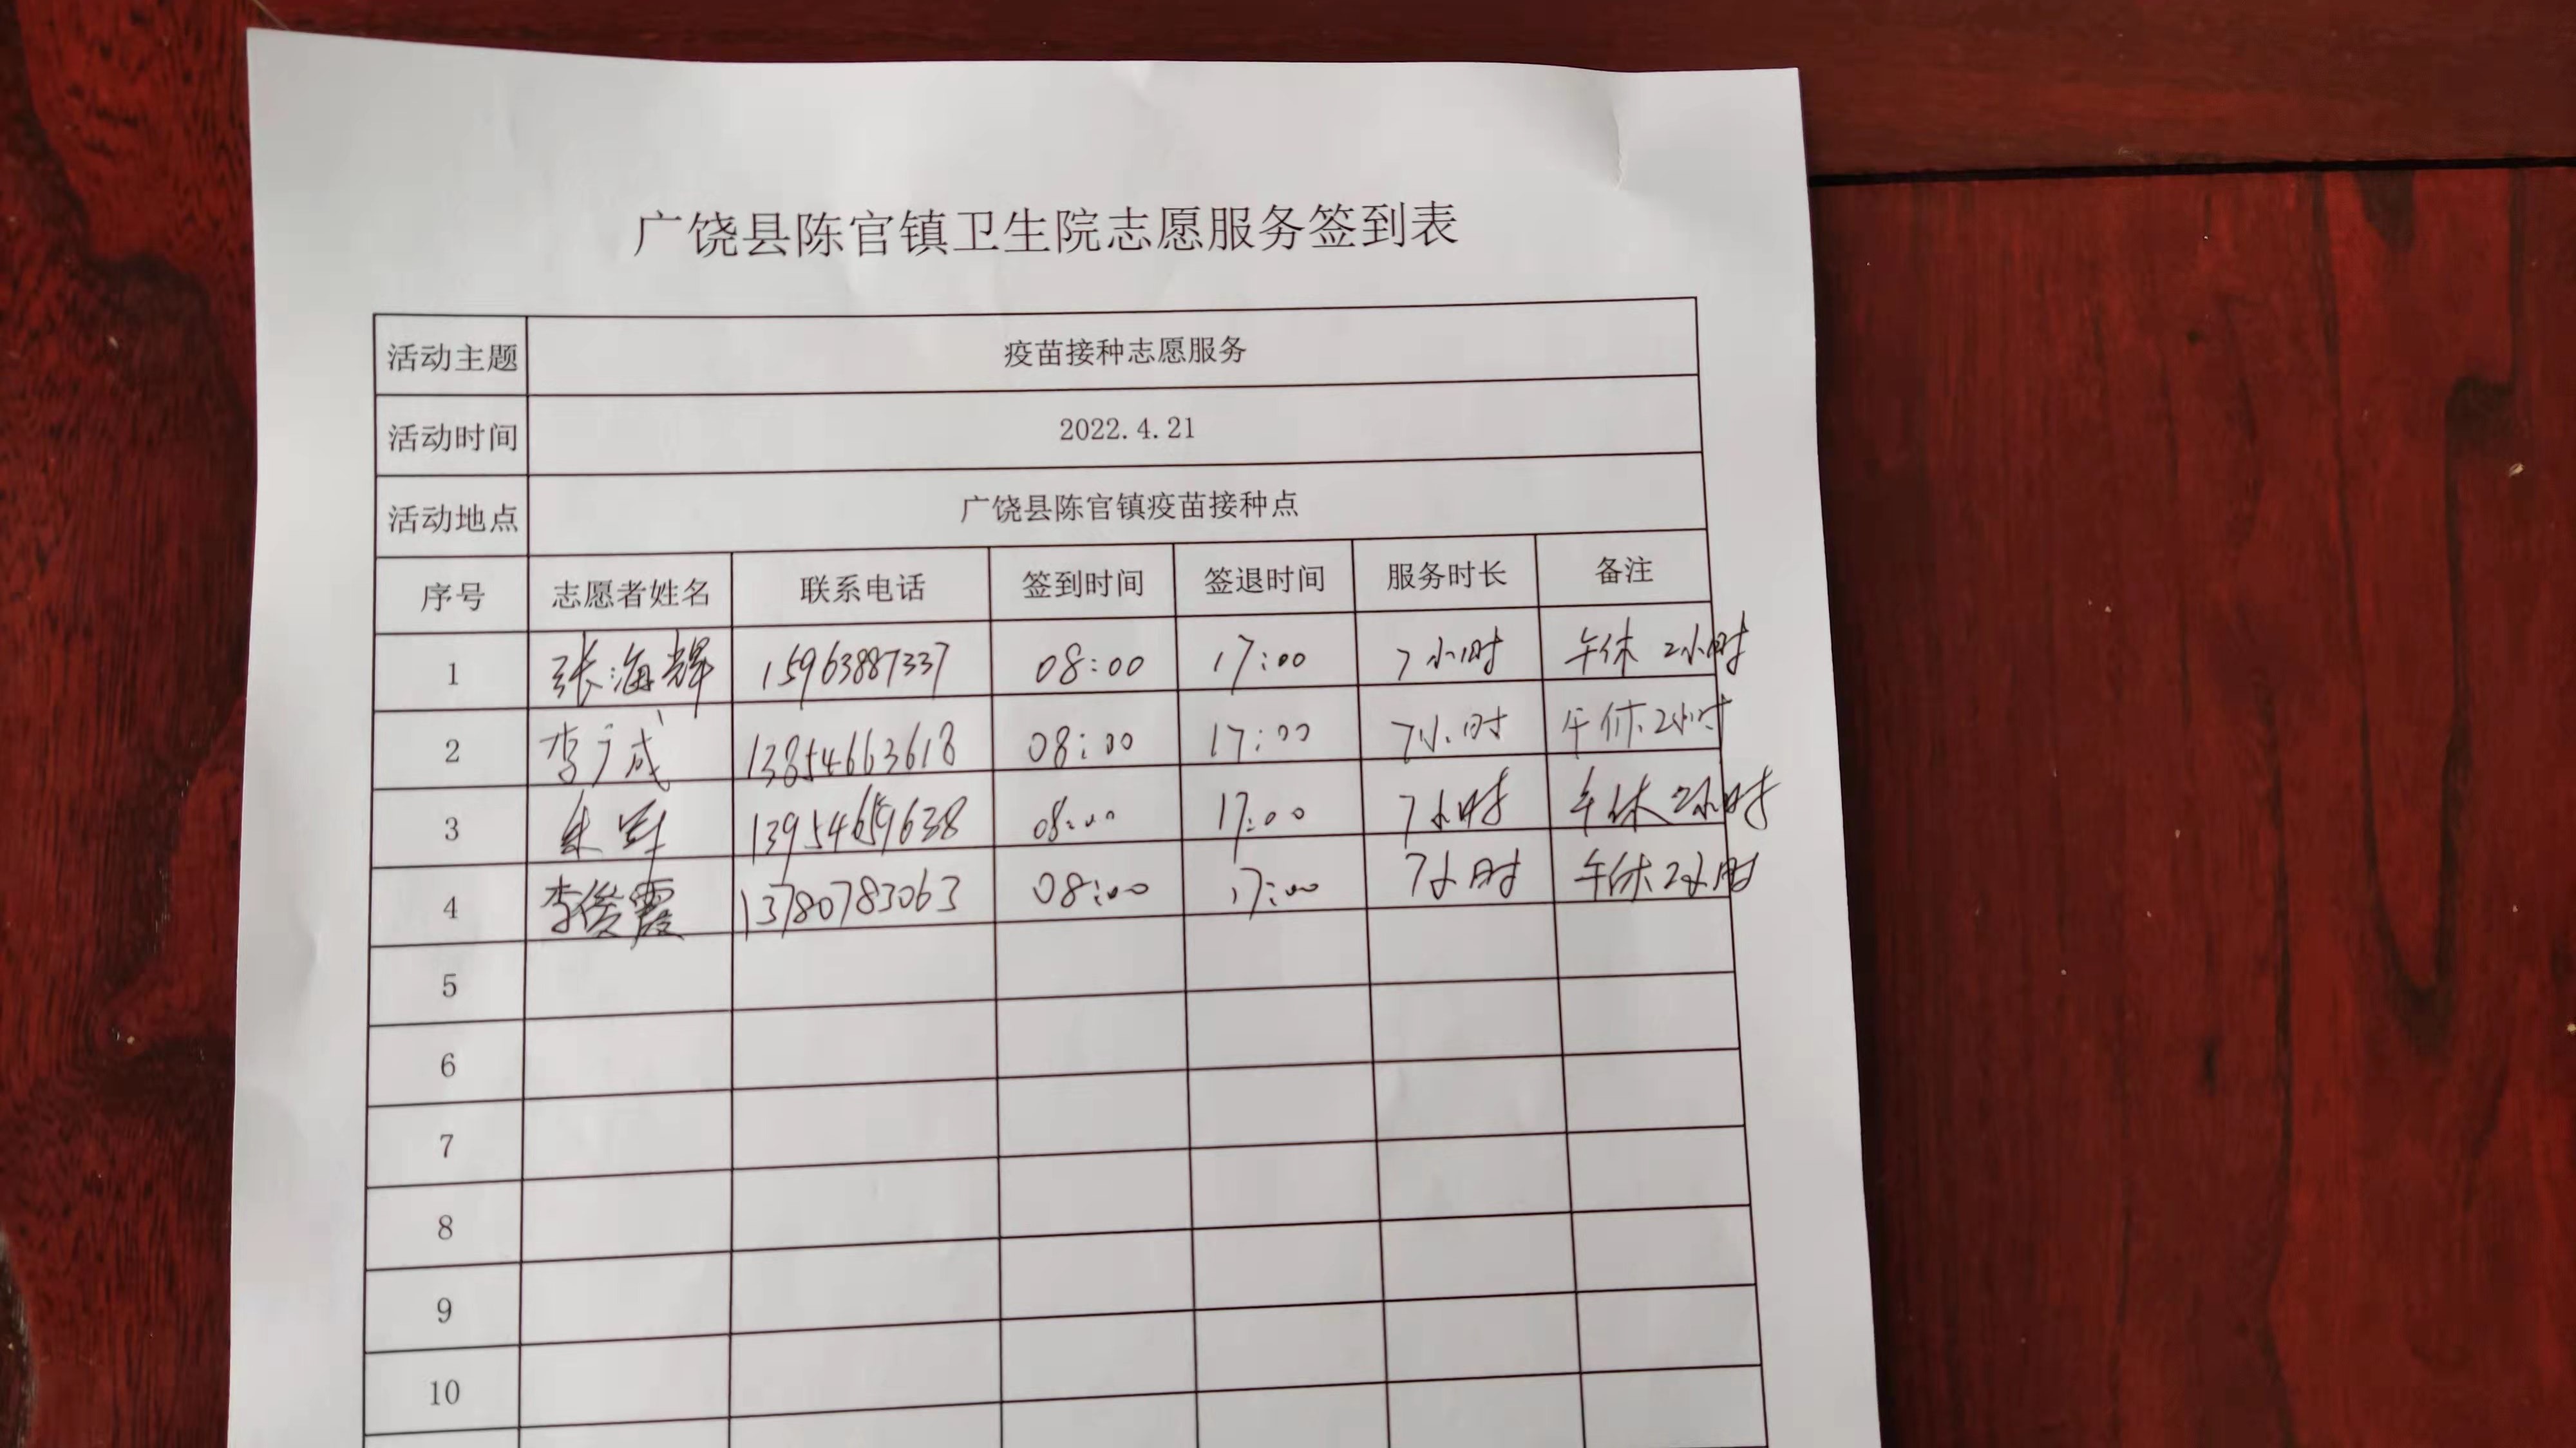 广饶县陈官镇卫生院志愿服务签到表
活动主题 疫苗接种志愿服务
活动时间 2022.4.21
活动地点 广饶县陈官镇疫苗接种点
序号 志愿者姓名 联系电话 签到时间 签退时间 服务时长 备注
1 张海辉 15963887337 08:00 17:00 7小时 午休2小时
2 李广成 13854663618 08:00 17:00 7小时 午休2小时
3 朱军 13954659638 08:00 17:00 7小时 午休2小时
4 李俊霞 13780783063 08:00 17:00 7小时 午休2小时
5
6
7
8
9
10